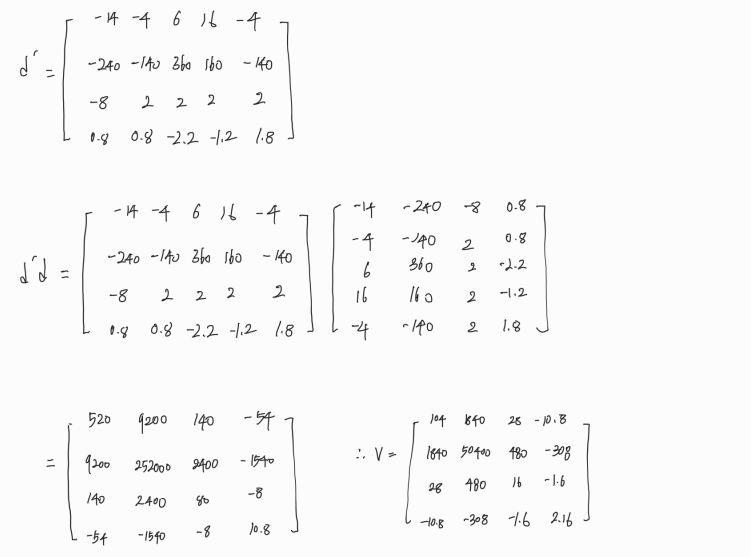 d' = [ -14 -4 6 16 -4
-240 -140 360 160 -140
-8 2 2 2 2
0.8 0.8 -2.2 -1.2 1.8 ]
d'd = [ -14 -4 6 16 -4
-240 -140 360 160 -140
-8 2 2 2 2
0.8 0.8 -2.2 -1.2 1.8 ] [ -14 -240 -8 0.8
-4 -140 2 0.8
6 360 2 -2.2
16 160 2 -1.2
-4 -140 2 1.8 ]
= [ 520 9200 140 -54
9200 252000 2400 -1540
140 2400 80 -8
-54 -1540 -8 10.8 ]
∴ V = [ 104 1840 28 -10.8
1840 50400 480 -308
28 480 16 -1.6
-10.8 -308 -1.6 2.16 ]